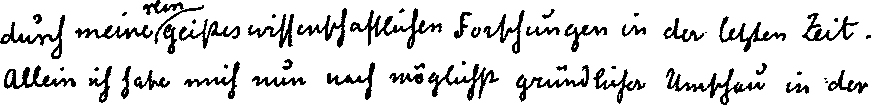 durch meine rein geisteswissenschaftlichen Forschungen in der letzten Zeit.
Allein ich habe mich nun nach möglichst gründlicher Umschau in der